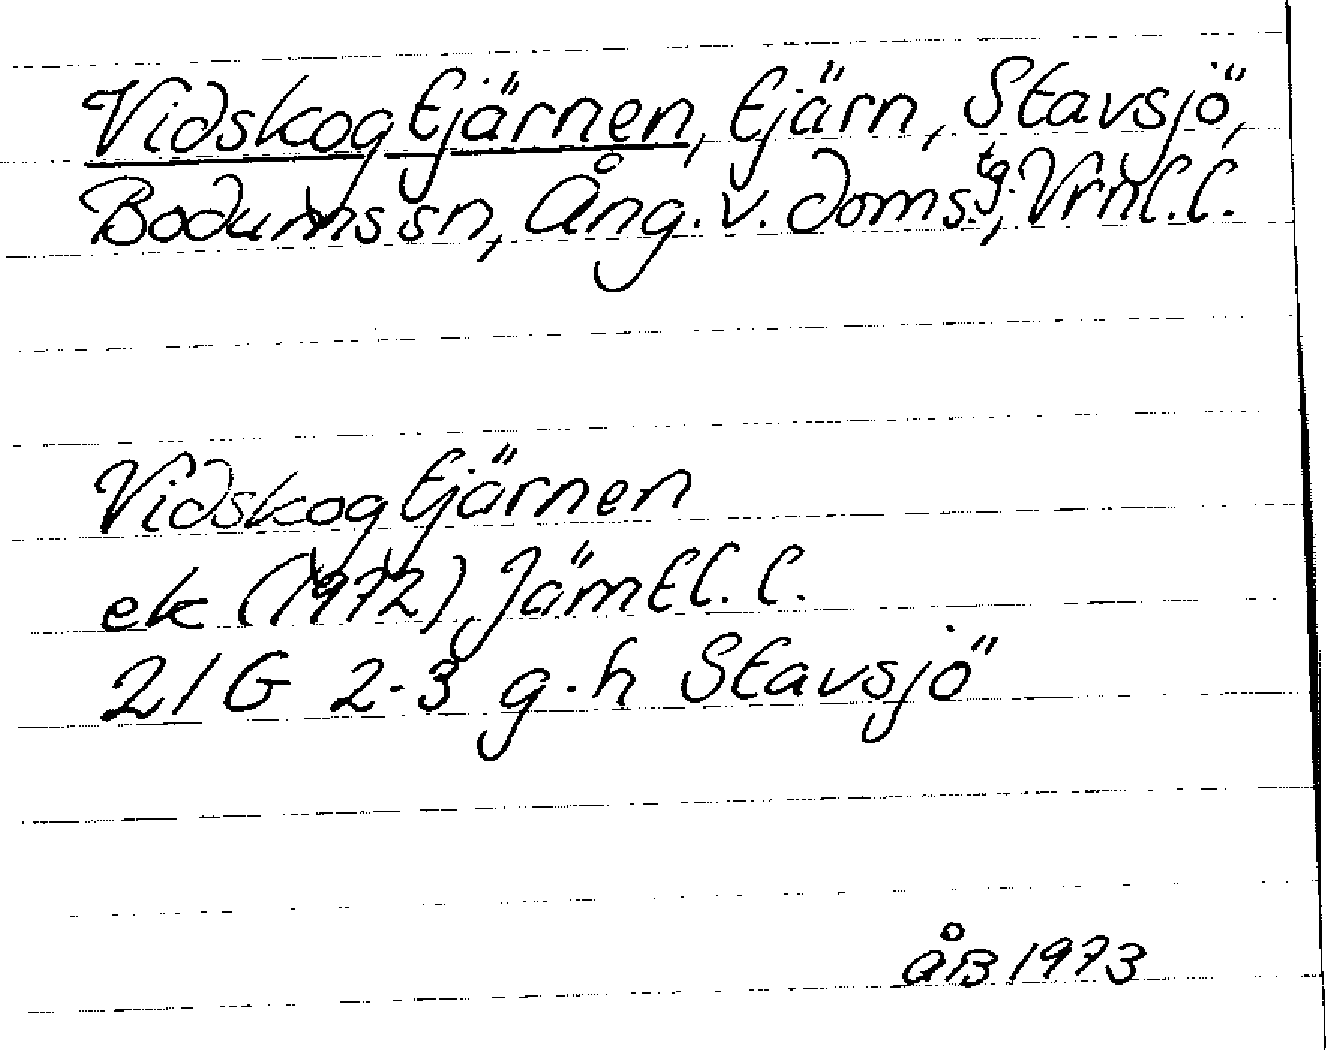 Vidskogtjärnen, tjärn, Stavsjö,
Bodums sn, Ång. v. doms.tg, Vrnl. l.
Vidskogtjärnen
ek (1972) Jämtl. l.
21G 2-3 g-h Stavsjö
åB 1973